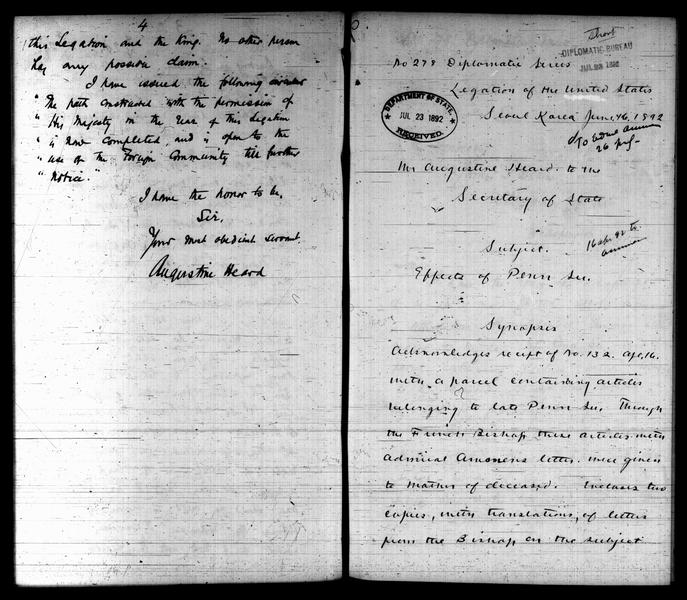 4
this Legation and the King. No other person
has any possible claim.
I have issued the following circular
"The path constructed with the permission of
"His Majesty in the rear of this Legation
"is now completed, and is open to the
"use of the Foreign Community till further
"notice."
I have the honor to be,
Sir,
Your most obedient servant,
Augustine Heard
Short
DIPLOMATIC BUREAU
JUL 23 1892
No 278 Diplomatic Series
Legation of the United States
DEPARTMENT OF STATE.
JUL 23 1892
RECEIVED.
Seoul Korea June 16, 1892
26
Mr Augustine Heard to the
Secretary of State
Subject.
16 Apr 92 to
Effects of Penn Su.
Synopsis
Acknowledges receipt of No. 132 Apl, 16.
with a parcel containing articles
belonging to late Penn Su. Through
the French Bishop these articles with
Admiral letter were given
to mother of deceased. Incloses two
copies, with translations, of letter
from the Bishop on the subject